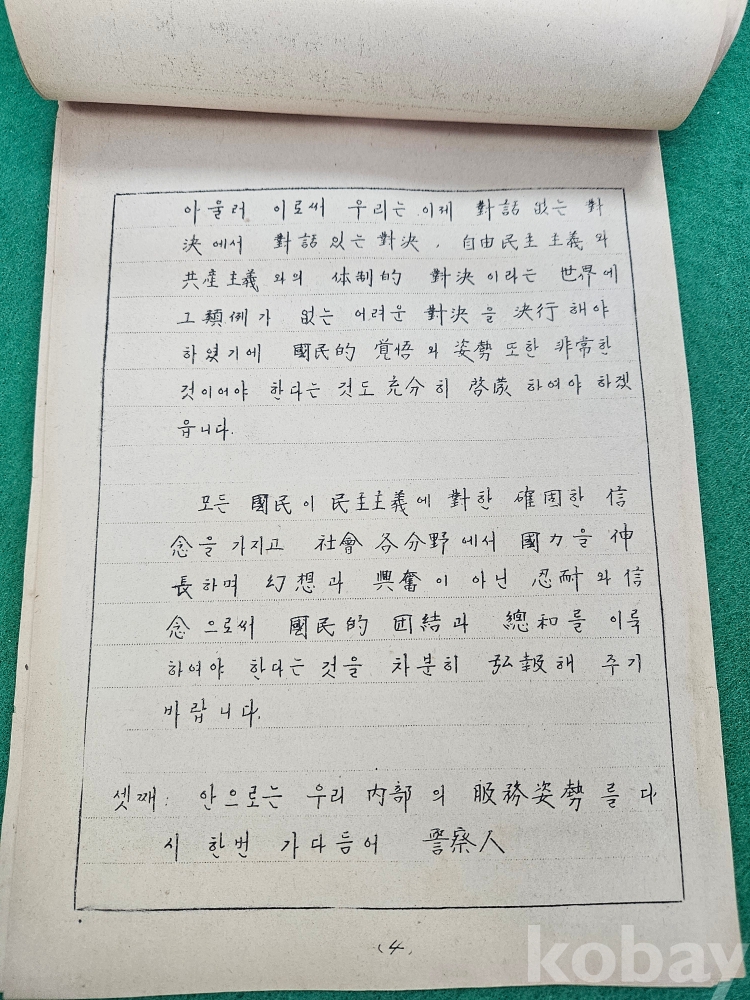 아울러 이로써 우리는 이제 對話 없는 對
決에서 對話 있는 對決, 自由民主主義와
共産主義와의 体制的 對決이라는 世界에
그 類例가 없는 어려운 對決을 決行해야
하였기에 國民的 覚悟와 姿勢 또한 非常한
것이어야 한다는 것도 充分히 啓蒙하여야 하겠
읍니다.
모든 國民이 民主主義에 對한 確固한 信
念을 가지고 社會 各分野에서 國力을 伸
長하며 幻想과 興奮이 아닌 忍耐와 信
念으로써 國民的 団結과 總和를 이룩
하여야 한다는 것을 차분히 弘報해 주기
바랍니다.
셋째: 안으로는 우리 內部의 服務姿勢를 다
시 한번 가다듬어 警察人
(4)
kobay